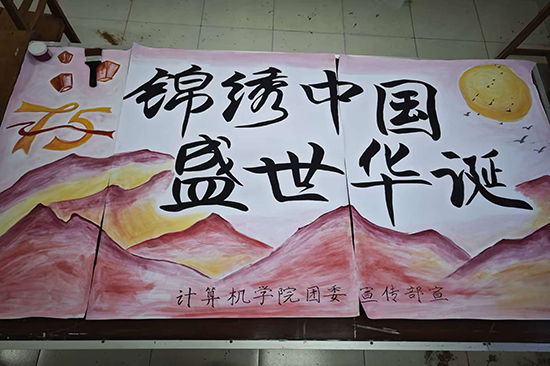 75
锦绣中国
盛世华诞
计算机学院团委 宣传部宣